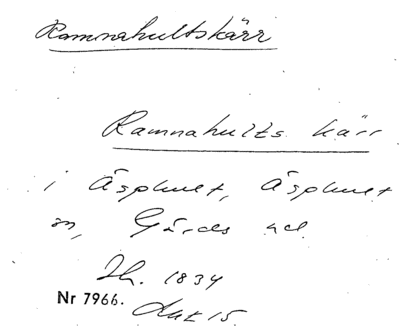 Ramnahultskärr
Ramnahults kärr
i Äsphult, Äsphult
sn, Gärds hd
Sk. 1834
Nr 7966. Akt 15